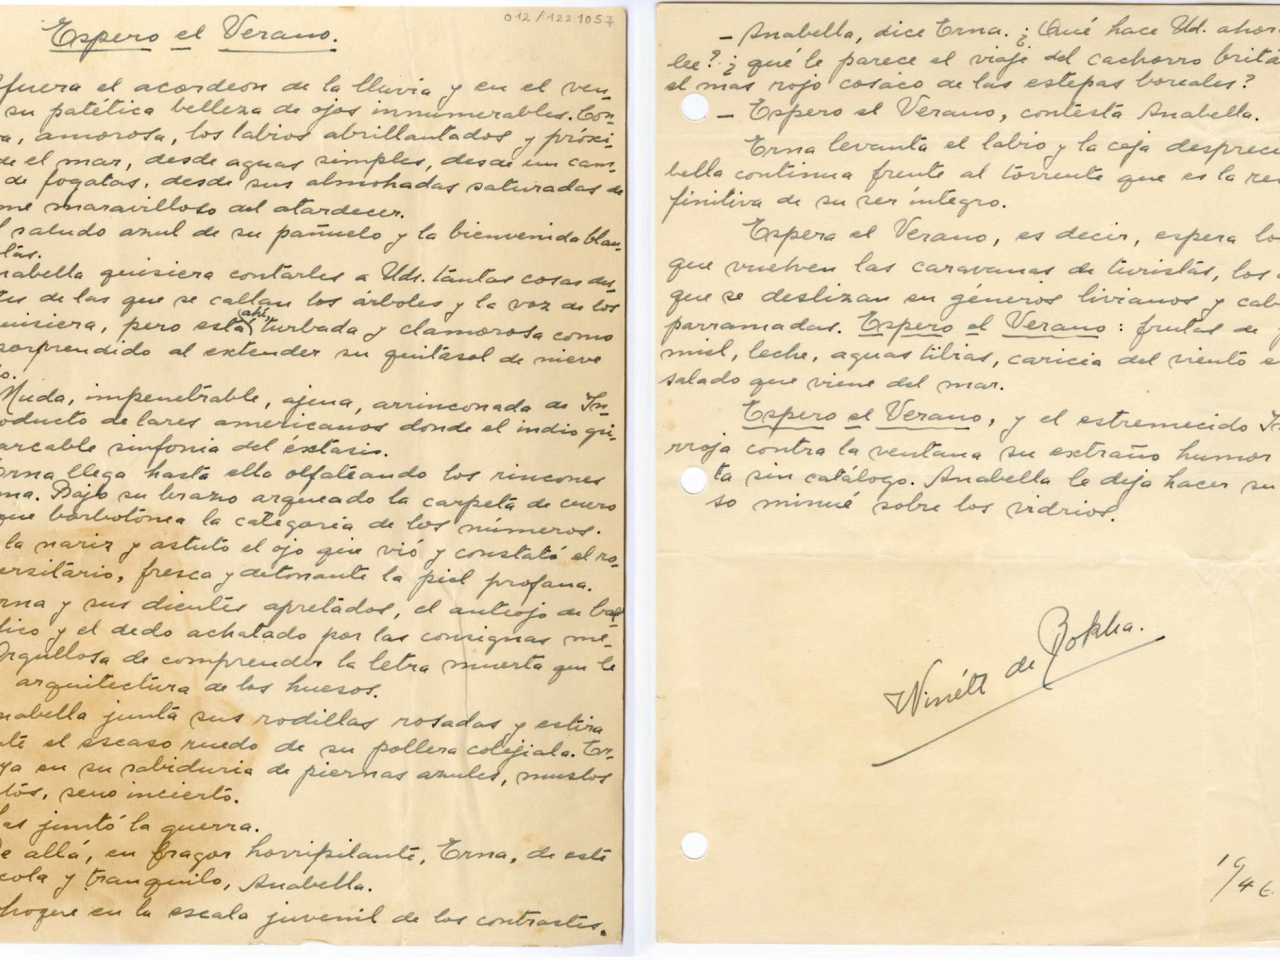 012/1221057
Espero el Verano.
fuera el acordeon de la lluvia y en el ven-
su patética belleza de ojos innumerables. Con-
a, amorosa, los labios abrillantados y próxi-
de el mar, desde aguas simples, desde un cam-
de fogatas, desde sus almohadas saturadas de
me maravilloso del atardecer.
l saludo azul de su pañuelo y la bienvenida blan-
nabella quisiera contarles a Uds. tantas cosas dis-
tes de las que se callan los árboles y la voz de los
ahí,
uisiera, pero está turbada y clamorosa como
sorprendido al extender su quitasol de nieve
o.
Muda, impenetrable, ajena, arrinconada de In-
oducto de lares americanos donde el indio gri-
arcable sinfonía del éxtasis.
Erna llega hasta ella olfateando los rincones
ma. Bajo su brazo arqueado la carpeta de cuero
que borbotónea la categoría de los números.
la nariz y astuto el ojo que vió y constató el ro-
ersitario, fresca y detonante la piel profana.
rna y sus dientes apretados, el anteojo de
tico y el dedo achatado por las consignas me-
Orgullosa de comprender la letra muerta que le
arquitectura de los huesos.
nabella junta sus rodillas rosadas y estira
te el escaso ruedo de su pollera colejiala. Er-
ya en su sabiduria de piernas azules, muslos
tos, seno incierto.
las juntó la guerra.
e allá, en fragor horripilante, Erna, de este
cola y tranquilo, Anabella.
hoque en la escala juvenil de los contrastes.
– Anabella, dice Erna. ¿Qué hace Ud. ahora
lee? ¿qué le parece el viaje del cachorro britá
el mas rojo cosaco de las estepas boreales?
– Espero el Verano, contesta Anabella.
Erna levanta el labio y la ceja desprec
bella continua frente al torrente que es la res
finitiva de su ser íntegro.
Espera el Verano, es decir, espera lo
que vuelven las caravanas de turistas, los
que se deslizan en géneros livianos y cab
parramadas. Espero el Verano: frutas de
miel, leche, aguas tibias, caricia del viento e
salado que viene del mar.
Espero el Verano, y el estremecido In
rroja contra la ventana su extraño humor
ta sin catálogo. Anabella le deja hacer su
so minué sobre los vidrios.
Winétt de Rokha.
1946